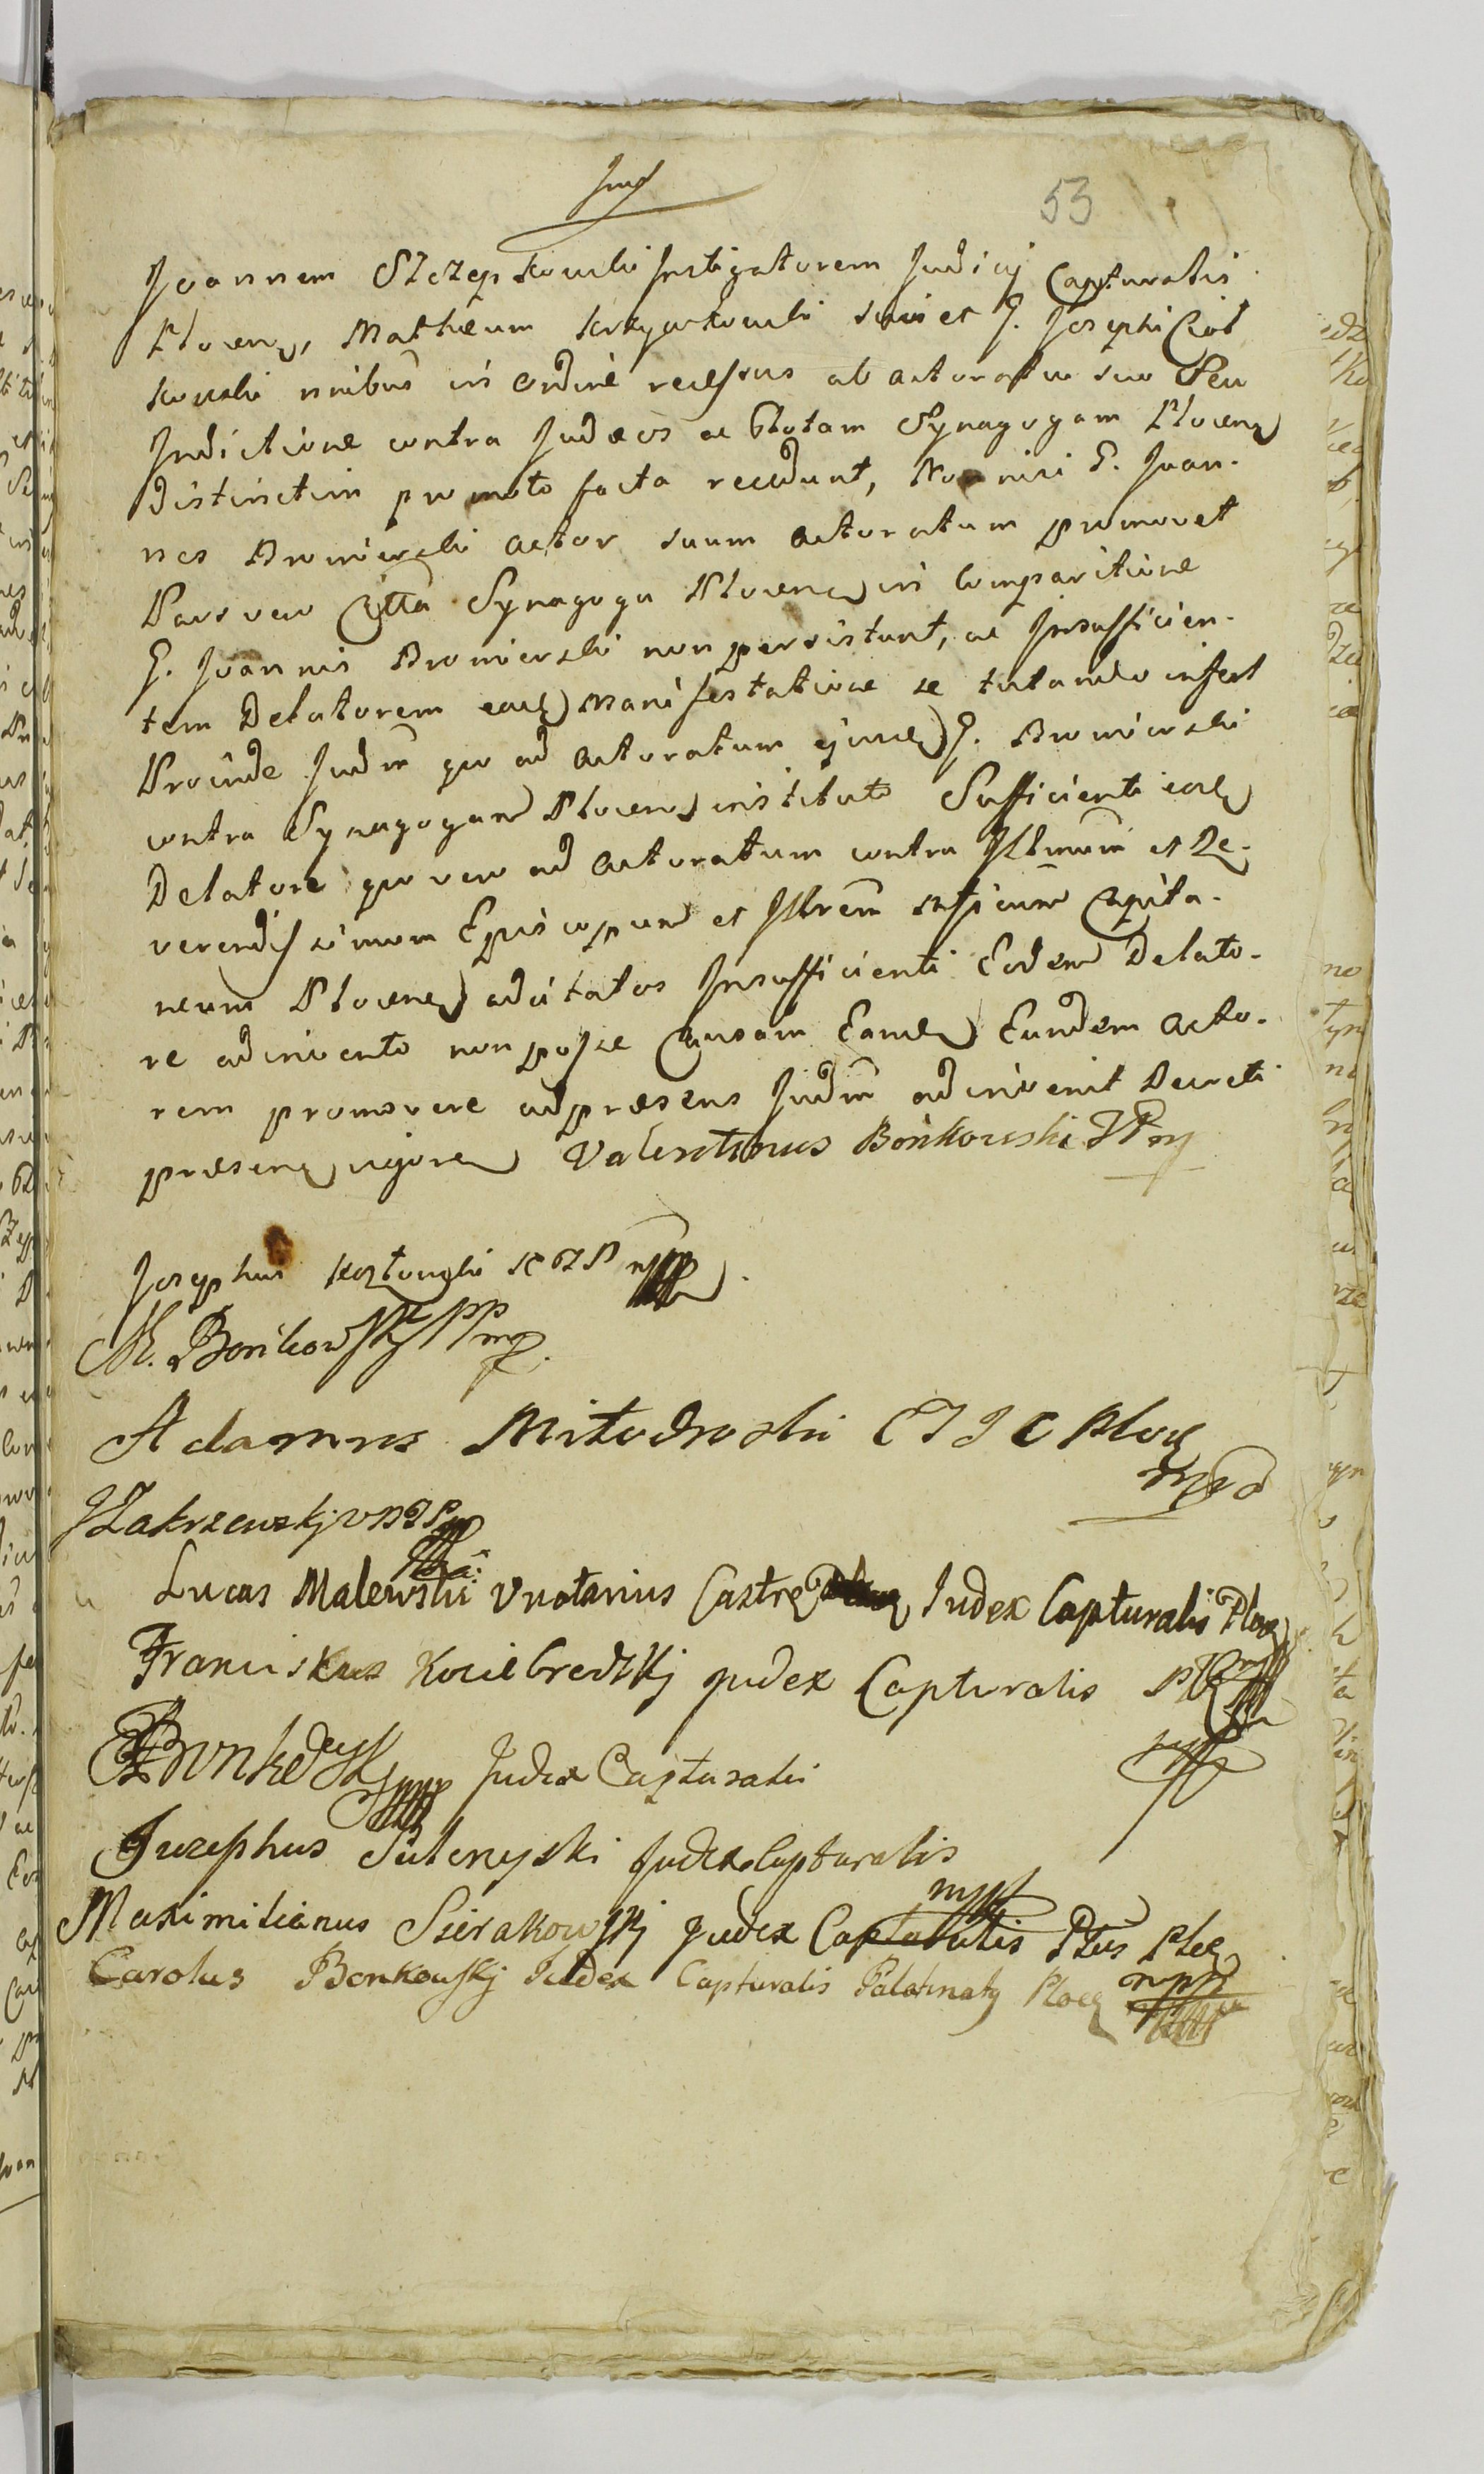 53
Joannem Szczepkowski Instigatorem Judicij Capturalis
Plocen, Matheum Krzywkowski suis et G. Josephi Cioł
kowski nnibus in ordine recessus ab actoratu suo seu
Indictione contra Judæos ac totam Synagogam Plocen
distinctim promoto facta recedunt, Non nisi G. Joan-
nes Bromierski actor suum actoratum promovet
Pars vero Citta Synagoga Plocen in comparitione
G. Joannis Bromierski non persistunt, ac Insufficien-
tem Delatorem eand Manifestatione se tutando infert
Proinde Judm quo ad actoratum ejusd G. Bromierski
contra Synagogam Plocen instituto Sufficienti eod
Delatore quo vero ad actoratum contra Illmum et Re-
verendissimum Episcopum et Illrem officium Capita-
neum Plocen adcitatos Insufficienti Eodem Delato-
re adinvento non posse Causam Eand Eundem acto-
rem promovere adpræsens Judm adinvenit Decreti
præsen vigore Valentinus Bońkowski
Josephus
M. Bońkowski
Adamus Miłodroski C J J C Ploc
JZakrzewskj
Lucas Malewski Vnotarius Castr Iudex Capturalis Ploc
Franciskus Kociebredzkj Judex Capturalis
Judex Capturalis
Juzephus Judex Capturalis
Maximilianus Sierakowskj Judex Capturalis Ptus Ploc
Carolus Bonkowskj Iudex Capturalis Palatinatg Ploc mpp